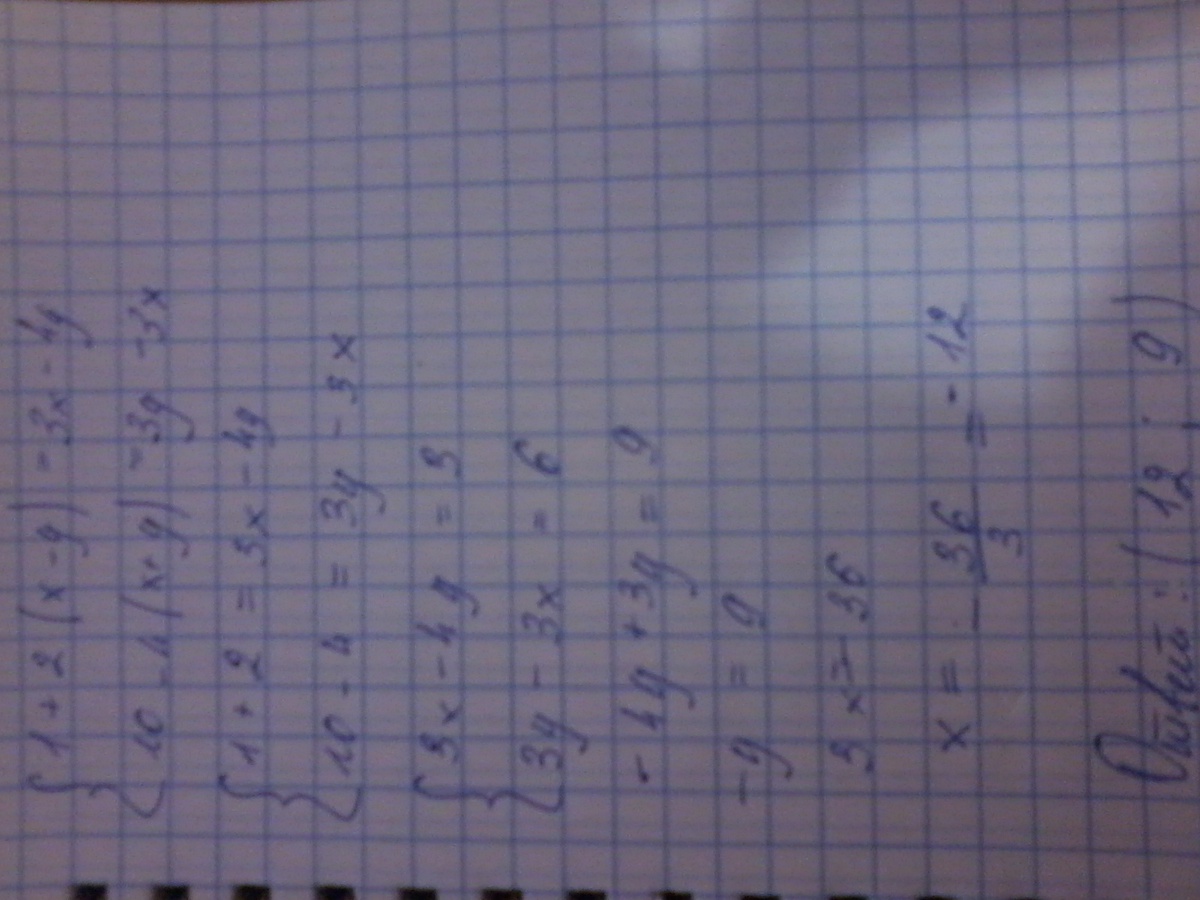 1 + 2 (x - y) = 3x - 4y
10 - 4 (x + y) = 3y - 3x
1 + 2 = 3x - 4y
10 - 4 = 3y - 3x
3x - 4y = 3
3y - 3x = 6
- 4y + 3y = 9
- y = 9
3x = - 36
x = - 36/3 = - 12
Ответ: (12; 9)